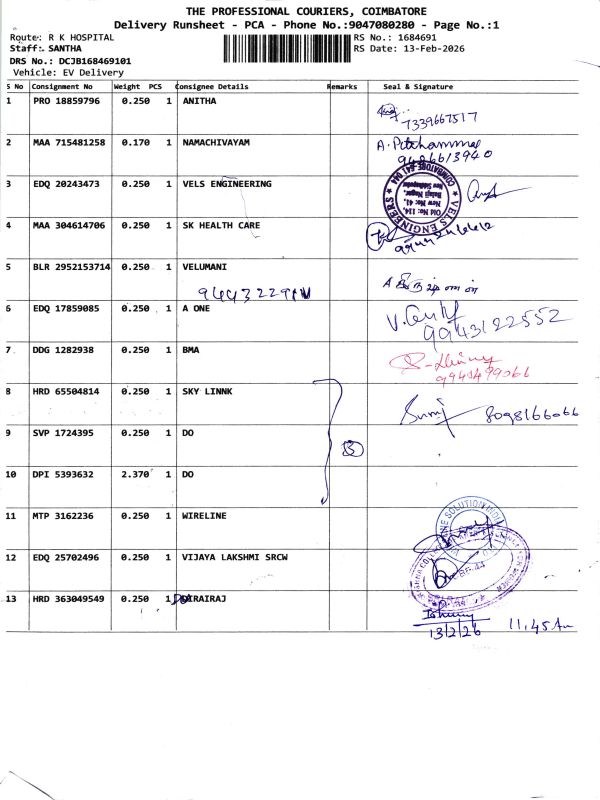 THE PROFESSIONAL COURIERS, COIMBATORE
Delivery Runsheet - PCA - Phone No.:9047080280 - Page No.:1
Route: R K HOSPITAL
RS No.: 1684691
Staff: SANTHA
RS Date: 13-Feb-2026
DRS No.: DCJB168469101
Vehicle: EV Delivery
S No Consignment No Weight PCS Consignee Details Remarks Seal & Signature
1 PRO 18859796 0.250 1 ANITHA
7339667517
2 MAA 715481258 0.170 1 NAMACHIVAYAM
3 EDQ 20243473 0.250 1 VELS ENGINEERING
VELS ENGINEERS
COIMBATORE-641 044
Old No: 114,
New No: 41,
Balaji Nagar,
4 MAA 304614706 0.250 1 SK HEALTH CARE
5 BLR 2952153714 0.250 1 VELUMANI
6 EDQ 17859085 0.250 1 A ONE
9943122552
7 DDG 1282938 0.250 1 BMA
8 HRD 65504814 0.250 1 SKY LINNK
8098166066
9 SVP 1724395 0.250 1 DO
3
10 DPI 5393632 2.370 1 DO
11 MTP 3162236 0.250 1 WIRELINE
12 EDQ 25702496 0.250 1 VIJAYA LAKSHMI SRCW
13 HRD 363049549 0.250 1 DORAIRAJ
13/2/26 11.45 Am